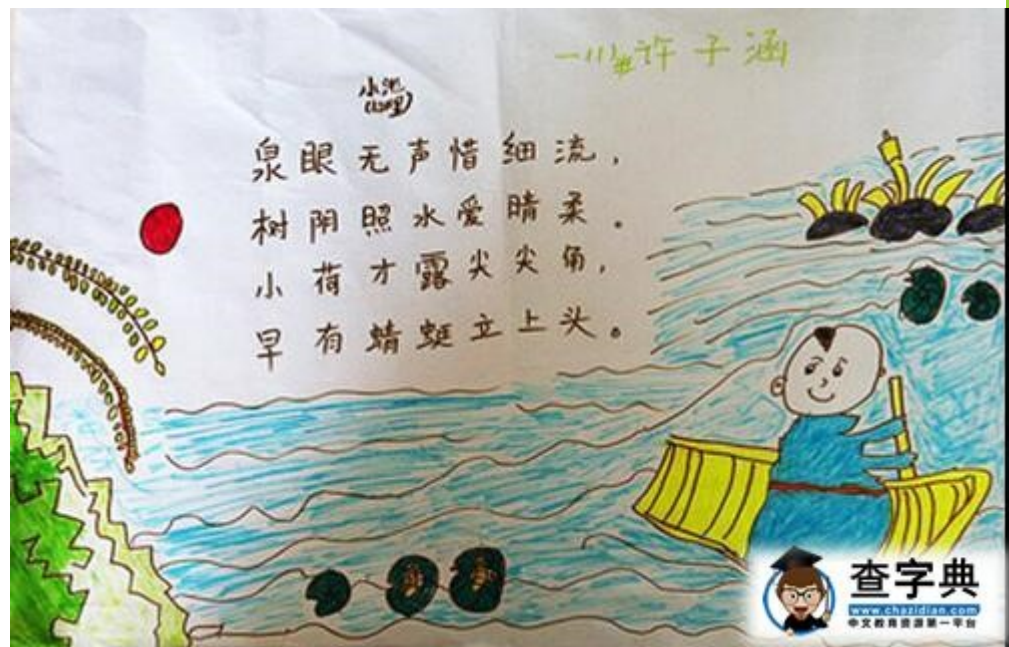 许子涵
小池
泉眼无声惜细流，
树阴照水爱晴柔。
小荷才露尖尖角，
早有蜻蜓立上头。
查字典
www.chazidian.com
中文教育资源第一平台